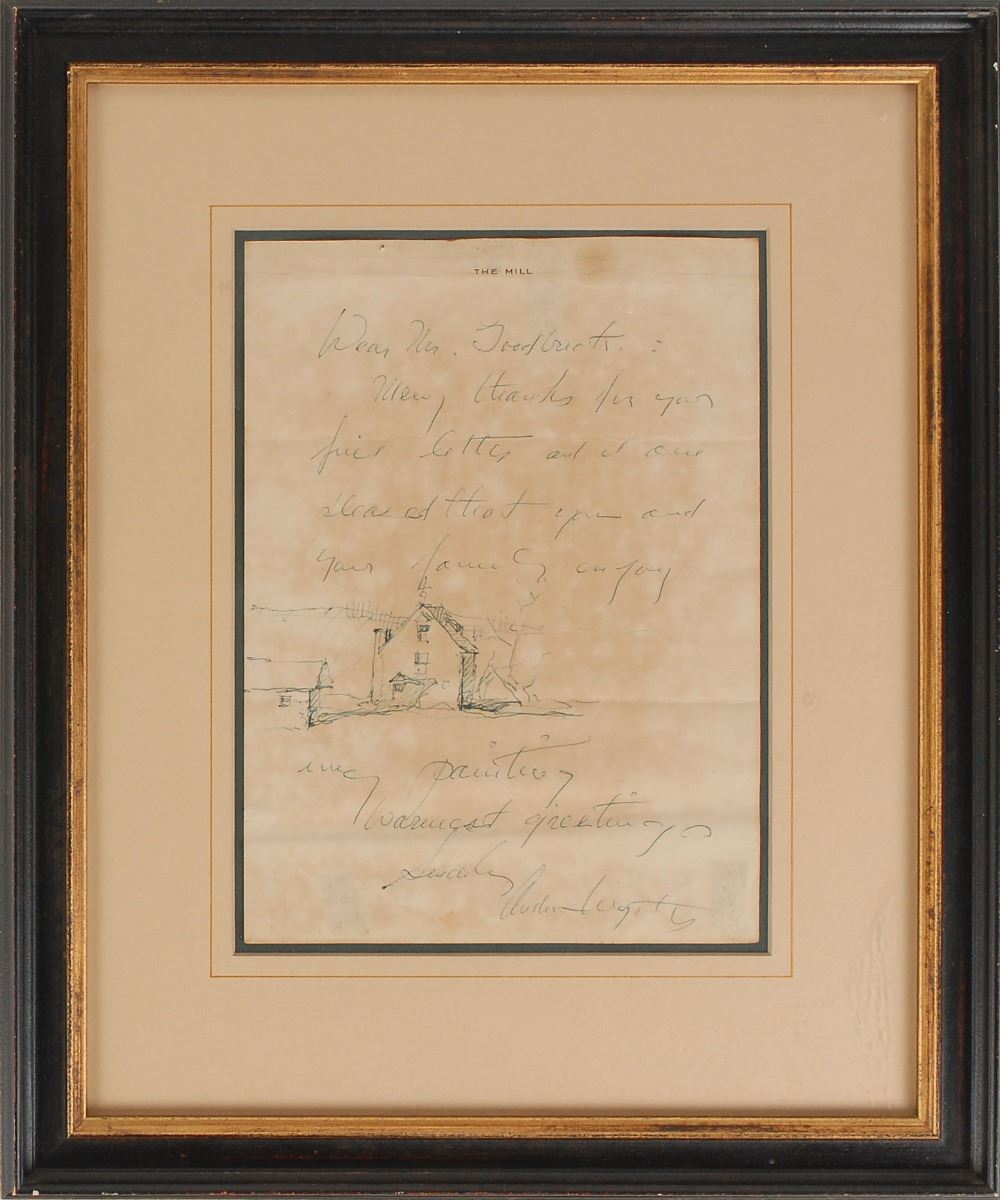 THE MILL
Dear Mr.
Many thanks for your
fine letter and I am
pleased that you and
your family enjoy
my painting
Warmest greetings
Sincerely
Andrew Wyeth